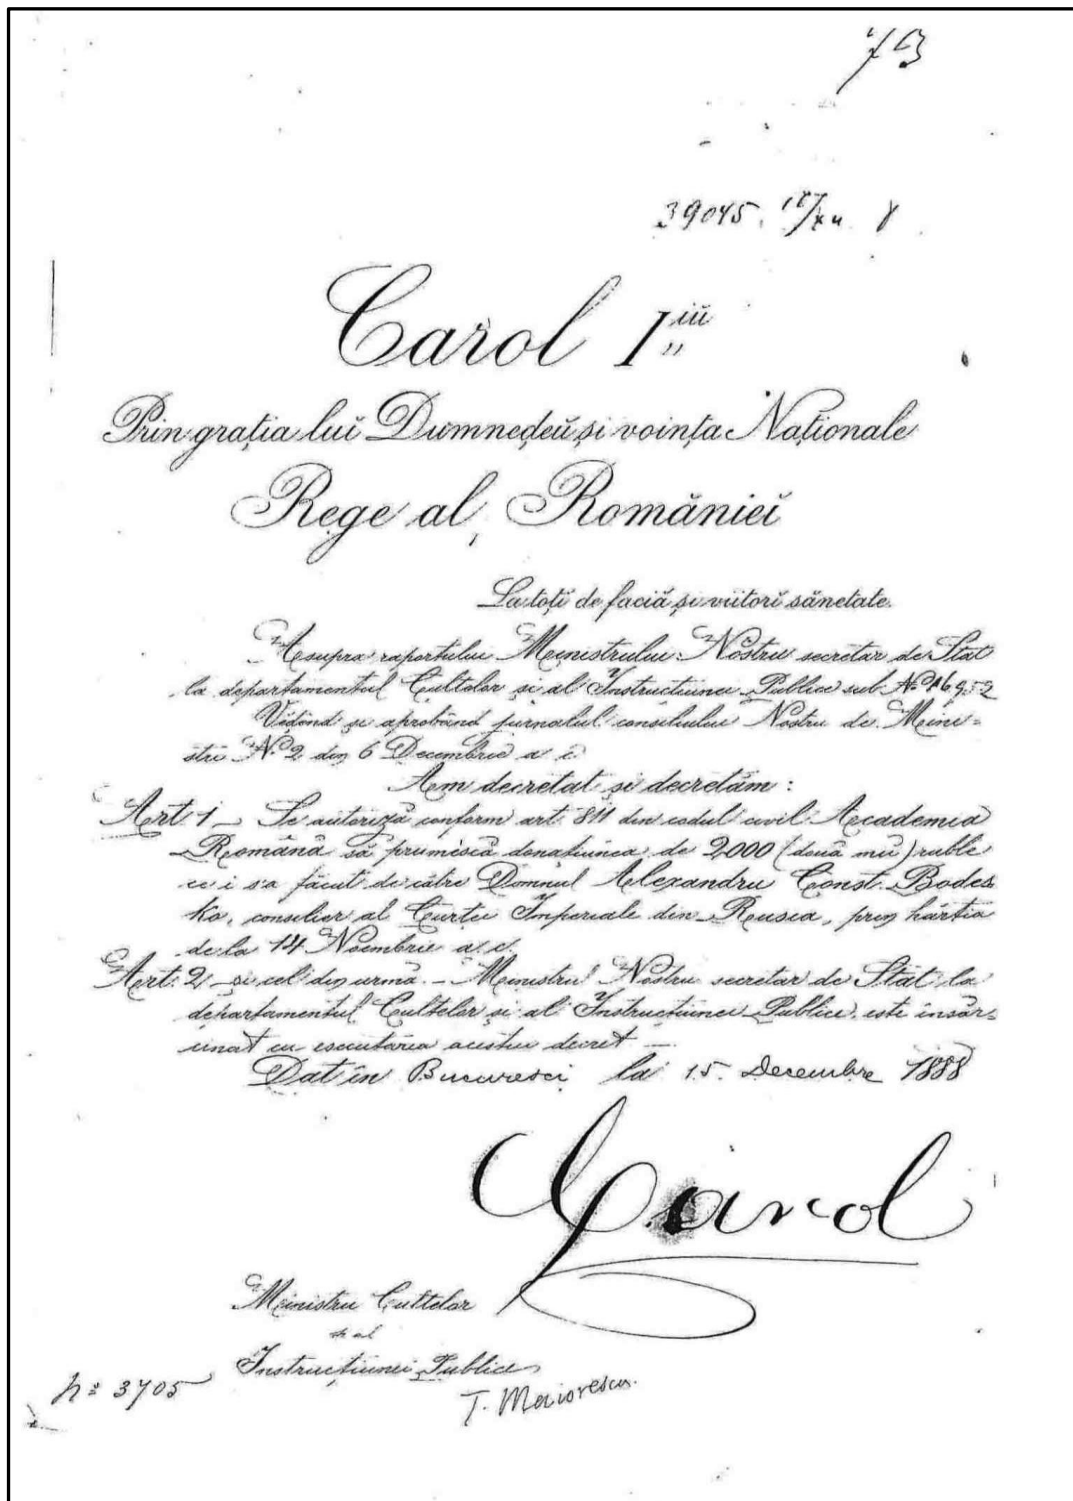 73
39045.
Carol I iu
Prin grația lui Dumneḑeŭ și voința Naționale
Rege al României
La toți de faciă și viitori sănetate.
Asupra raportului Ministrului Nostru secretar de Stat
la departamentul Cultelor și al Instrucțiunei Publice sub No 16952
Vĕḑênd și aprobând jurnalul consiliului Nostru de Mini-
stri No 2 din 6 Decembrie a c.
Am decretat și decretăm :
Art 1 – Se autoriză conform art 811 din codul civil Academia
Română să primiscă donațiunea de 2000 (două mii) ruble
ce i s'a făcut de către Domnul Alexandru Const. Bodes
ko, consilier al Curții Imperiale din Rusia, prin hârtia
de la 14 Noembrie a. c.
Art. 2 și cel din urmă. – Ministrul Nostru secretar de Stat la
departamentul Cultelor și al Instrucțiunei Publice este însăr-
cinat cu esecutarea acestui decret —
Dat în Bucuresci la 15. Decembre 1888
Carol
Ministru Cultelor
și al
Instrucțiunei Publice
No 3705
T. Maiorescu.